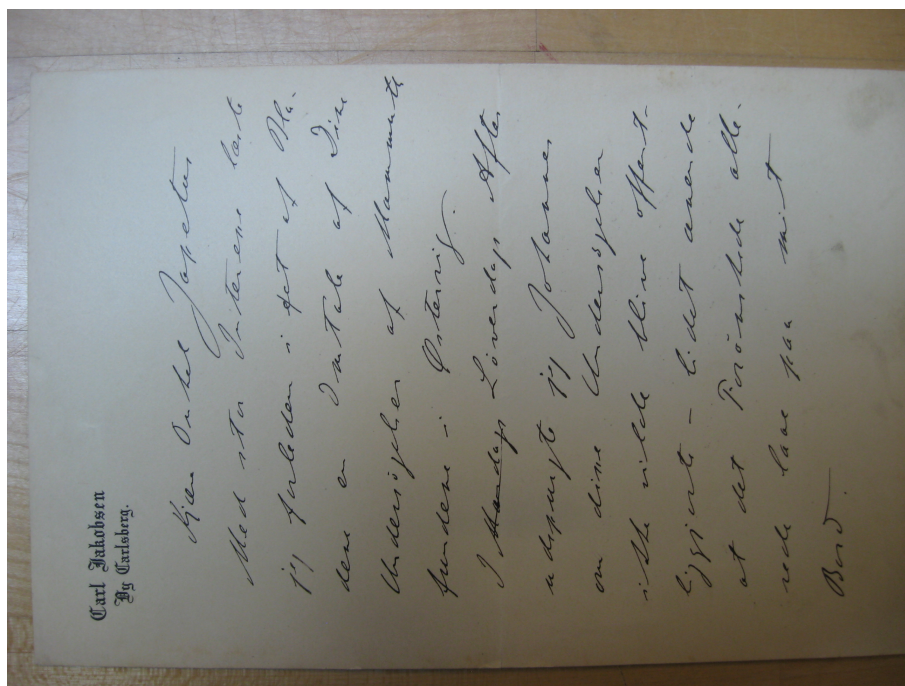 Carl Jakobsen
Ny Carlsberg.
Kjære Onkel Japetus
Med stor Interesse læste
jeg forleden i et af Bla-
dene en Omtale af Dine
Undersøgelser af Mammuth
fundene i Østerrig.
I Mandags Lørerdags Aften
udspurgte jeg Johannes
om disse Undersøgelser
ikke vilde blive offent-
liggjorte – lidet anende
at det Tilsendte alle-
rede laae paa mit
Bord.